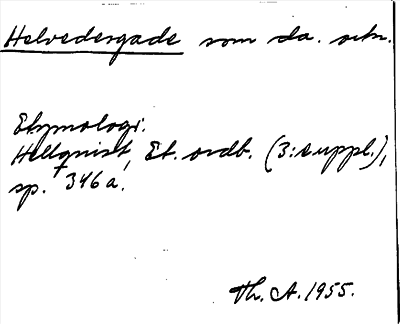 Helvedergade som da. stn.
Etymologi.
Hellquist, Et. ordb. (3: suppl.),
sp. 346a.
Th. A. 1955.